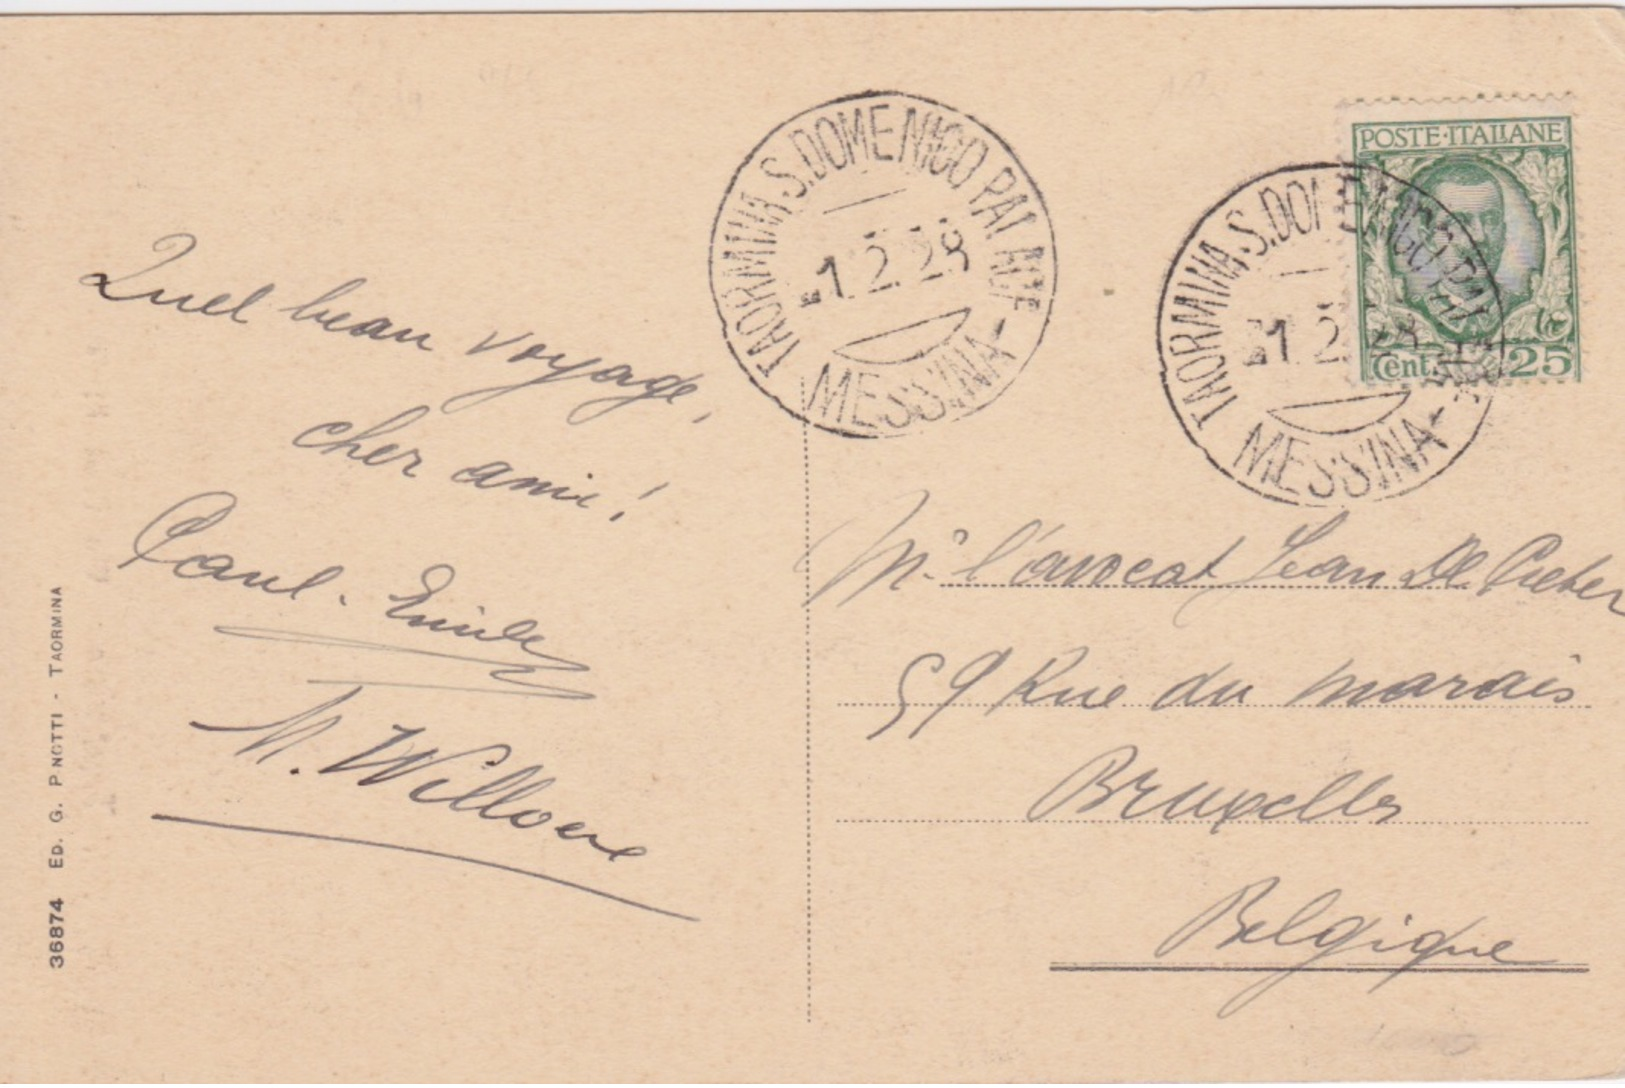 Quel beau voyage,
cher ami!
Paul-Emile
M. Willo
36874 ED. G. PNOTTI - TAORMINA
TAORMINA S. DOMENICO PALACE
-1.2.28
MESSINA
POSTE·ITALIANE
Cent. 25
TAORMINA S. DOMENICO PALACE
-1.2.28
MESSINA
Mr l'avocat Jean De
59 Rue du marais
Bruxelles
Belgique